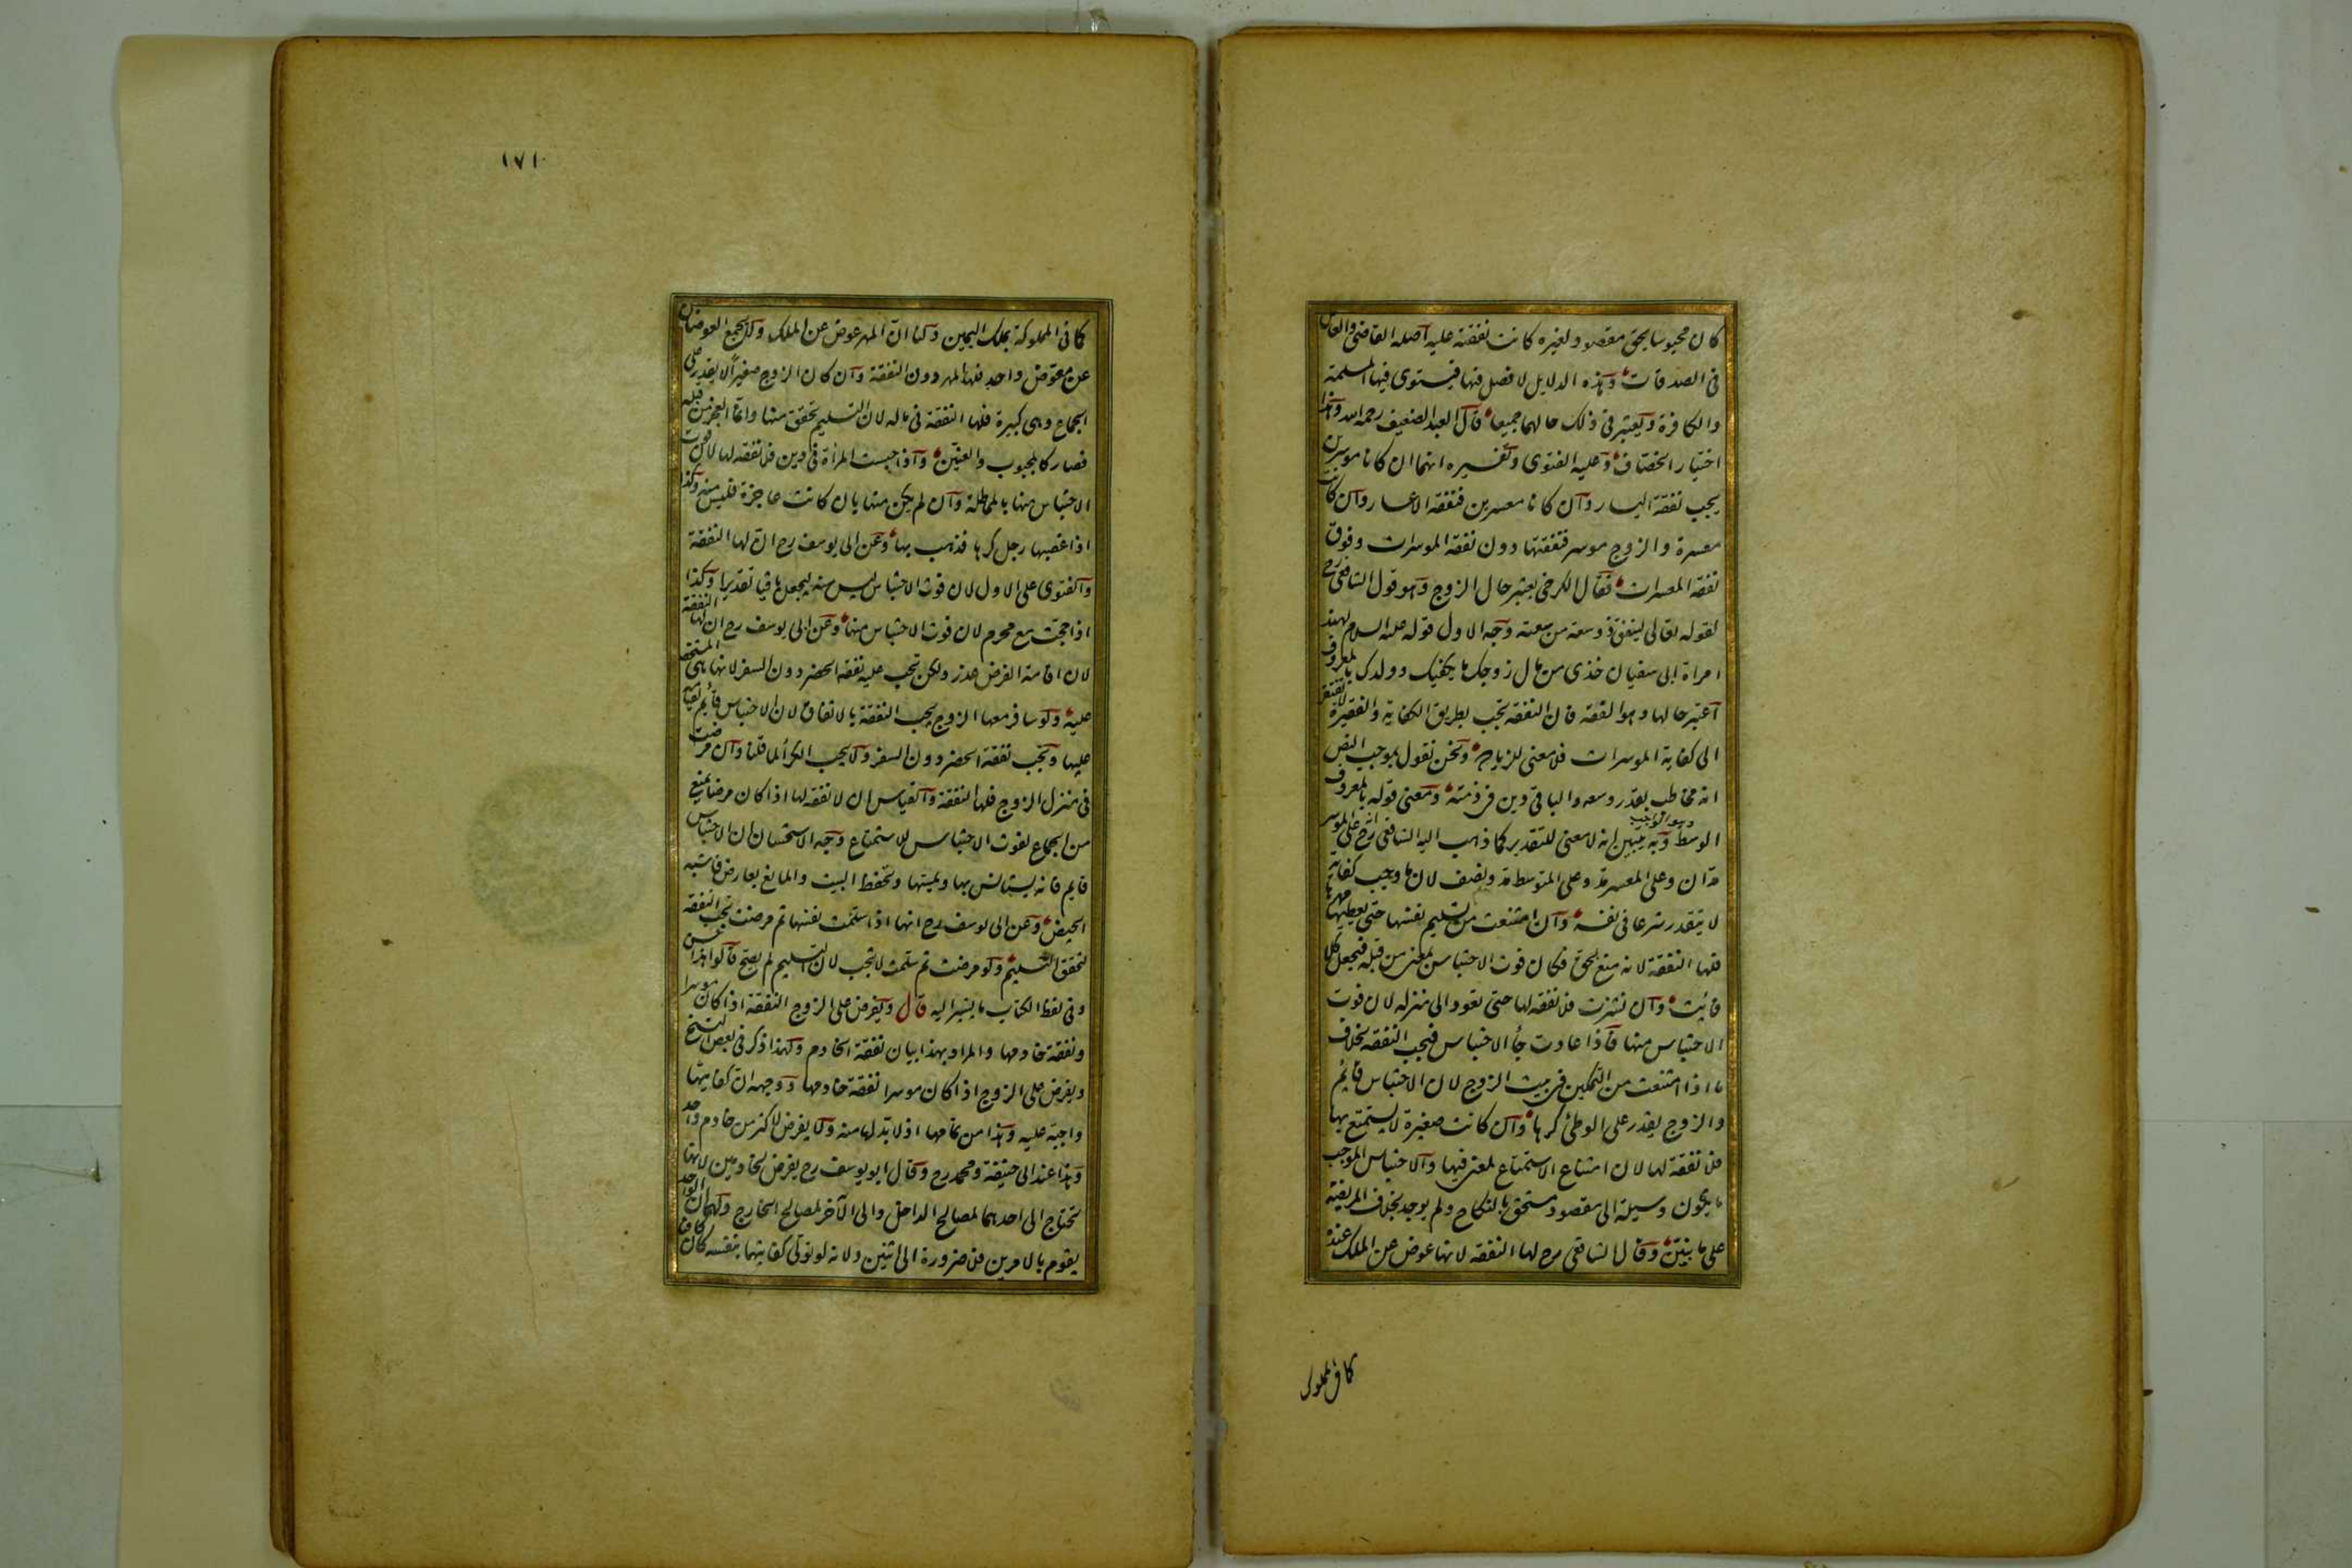 كان محبوسا بحق مقصود لغيره كانت نفقته عليه اصله القاضى والعامل
فى الصدقات وهذه الدلايل لا فصل فيها فيستوى فيها المسلمة
والكافرة ويعتبر فى ذلك حالهما جميعا قال العبد الضعيف رحمه الله وهذا
اختيار الخصاف وعليه الفتوى وتفسيره انهما ان كانا موسرين
يجب نفقة اليسار وان كانا معسرين فنفقة الاعسار وان كانت
معسرة والزوج موسر فنفقتها دون نفقة الموسرات وفوق
نفقة المعسرات فقال الكرخى يعتبر حال الزوج وهو قول الشافعى رح
لقوله تعالى لينفق ذو سعة من سعته وجه الاول قوله عليه السلام لهند
امراة ابى سفيان خذى من مال زوجك ما يكفيك وولدك بالمعروف
اعتبر حالها وهو الفقه فان النفقة تجب بطريق الكفاية والفقيرة لا تفتقر
الى كفاية الموسرات فلا معنى للزيادة ونحن نقول بموجب النص
انه مخاطب بقدر وسعه والباقى دين فى ذمته ومعنى قوله بالمعروف
الوسط وهو الواجب وبه يتبين انه لا معنى للتقدير كما ذهب اليه الشافعى رح انه على الموسر
مدان وعلى المعسر مد وعلى المتوسط مد ونصف لان ما وجب كفاية
لا يتقدر شرعا فى نفسه وان امتنعت من تسليم نفسها حتى يعطيها مهرها
فلها النفقة لانه منع بحق فكان فوت الاحتباس لمعنى من قبله فيجعل كلا
فائت وان نشزت فلا نفقة لها حتى تعود الى منزله لان فوت
الاحتباس منها فاذا عادت جاء الاحتباس فيجب النفقة بخلاف
ما اذا امتنعت من التمكين فى بيت الزوج لان الاحتباس قائم
والزوج يقدر على الوطئ كرها وان كانت صغيرة لا يستمتع بها
فلا نفقة لها لان امتناع الاستمتاع لمعنى فيها والاحتباس الموجب
ما يكون وسيلة الى مقصود مستحق بالنكاح ولم يوجد بخلاف المريضة
على ما نبين وقال الشافعى رح لها النفقة لانها عوض عن الملك عنده
كما فى المملوك
١٧١
كما فى المملوكة بملك اليمين ولنا ان المهر عوض عن الملك ولا يجمع العوضان
عن معوض واحد فلها المهر دون النفقة وان كان الزوج صغيرا لا يقدر على
الجماع وهى كبيرة فلها النفقة فى ماله لان التسليم تحقق منها وانما العجز من قبله
فصار كالمجبوب والعنين واذا حبست المراة فى دين فلا نفقة لها لان فوت
الاحتباس منها بالمماطلة وان لم يكن منها بان كانت عاجزة فليس منه وكذا
اذا غصبها رجل كرها فذهب بها وعن ابى يوسف رح ان لها النفقة
والفتوى على الاول لان فوت الاحتباس ليس منه ليجعل باقيا تقديرا وكذا
اذا حجت مع محرم لان فوت الاحتباس منها وعن ابى يوسف رح ان لها النفقة
لان اقامة الفرض عذر ولكن تجب عليه نفقة الحضر دون السفر لانها هى المستحقة
عليه ولو سافر معها الزوج يجب النفقة بالاتفاق لان الاحتباس قائم لقيامه
عليها وتجب نفقة الحضر دون السفر ولا يجب الكراء لما قلنا وان مرضت
فى منزل الزوج فلها النفقة والقياس ان لا نفقة لها اذا كان مرضا يمنع
من الجماع لفوت الاحتباس للاستمتاع وجه الاستحسان ان الاحتباس
قايم فانه يستانس بها ويمسها وتحفظ البيت والمانع بعارض فاشبه
الحيض وعن ابى يوسف رح انها اذا سلمت نفسها ثم مرضت تجب النفقة
لتحقق التسليم ولو مرضت ثم سلمت لا تجب لان التسليم لم يصح قالوا هذا حسن
وفى لفظ الكتاب ما يشير اليه قال ويفرض على الزوج النفقة اذا كان موسرا
ونفقة خادمها والمراد بهذا بيان نفقة الخادم ولهذا ذكر فى بعض النسخ
ويفرض على الزوج اذا كان موسرا نفقة خادمها ووجهه ان كفايتها
واجبة عليه وهذا من تمامها اذ لا بد لها منه ولا يفرض لاكثر من خادم واحد
وهذا عند ابى حنيفة ومحمد رح وقال ابو يوسف رح يفرض لخادمين لانها
تحتاج الى احدهما لمصالح الداخل والى الآخر لمصالح الخارج ولهما ان الواحد
يقوم بالامرين فلا ضرورة الى اثنين ولانه لو تولى كفايتها بنفسه كان كافيا